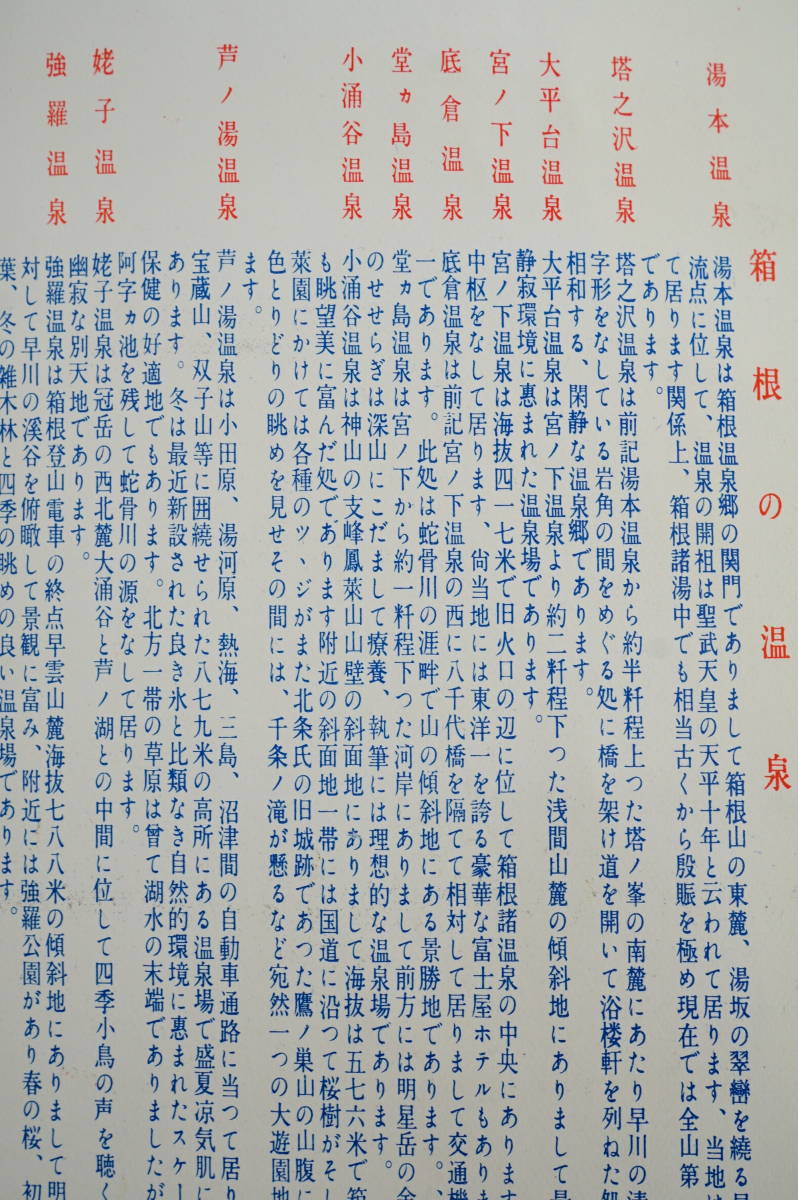 箱根の温泉
湯本温泉
湯本温泉は箱根温泉郷の関門でありまして箱根山の東麓、湯坂の翠巒を繞る
流点に位して、温泉の開祖は聖武天皇の天平十年と云われて居ります、当地
て居ります関係上、箱根諸湯中でも相当古くから殷賑を極め現在では全山第
であります。
塔之沢温泉
塔之沢温泉は前記湯本温泉から約半粁程上つた塔ノ峯の南麓にあたり早川の清
字形をなしている岩角の間をめぐる処に橋を架け道を開いて浴楼軒を列ねた処
相和する、閑静な温泉郷であります。
大平台温泉
大平台温泉は宮ノ下温泉より約二粁程下つた浅間山麓の傾斜地にありまして最
静寂環境に惠まれた温泉場であります。
宮ノ下温泉
宮ノ下温泉は海抜四一七米で旧火口の辺に位して箱根諸温泉の中央にあります
中枢をなして居ります、尙当地には東洋一を誇る豪華な富士屋ホテルもありま
底倉温泉
底倉温泉は前記宮ノ下温泉の西に八千代橋を隔てて相対して居りまして交通機
一であります。此処は蛇骨川の涯畔で山の傾斜地にある景勝地であります。
堂ヵ島温泉
堂ヵ島温泉は宮ノ下から約一粁程下つた河岸にありまして前方には明星岳の金
のせせらぎは深山にこだまして療養、執筆には理想的な温泉場であります。
小涌谷温泉
小涌谷温泉は神山の支峰鳳萊山山壁の斜面地にありまして海抜は五七六米で箱
も眺望美に富んだ処であります附近の斜面地一帯には国道に沿つて桜樹がそし
萊園にかけては各種のツヽジがまた北条氏の旧城跡であつた鷹ノ巣山の山腹に
色とりどりの眺めを見せその間には、千条ノ滝が懸るなど宛然一つの大遊園地
ます。
芦ノ湯温泉
芦ノ湯温泉は小田原、湯河原、熱海、三島、沼津間の自動車通路に当つて居り
宝蔵山、双子山等に囲繞せられた八七九米の高所にある温泉場で盛夏涼気肌に
あります。冬は最近新設された良き氷と比類なき自然的環境に惠まれたスケー
保健の好適地でもあります。北方一帯の草原は曾て湖水の末端でありましたが
阿字ヵ池を残して蛇骨川の源をなして居ります。
姥子温泉
姥子温泉は冠岳の西北麓大涌谷と芦ノ湖との中間に位して四季小鳥の声を聴く
幽寂な別天地であります。
強羅温泉
強羅温泉は箱根登山電車の終点早雲山麓海抜七八八米の傾斜地にありまして明
対して早川の溪谷を俯瞰して景観に富み、附近には強羅公園があり春の桜、初
葉、冬の雑木林と四季の眺めの良い温泉場であります。